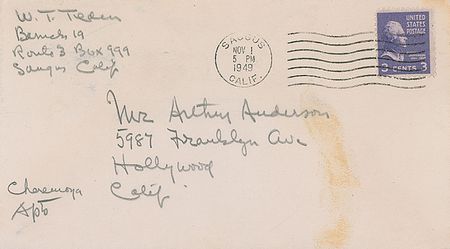 W. T. Tilden
Barracks 19
Route 3 Box 999
Saugus Calif
SAUGUS
NOV 1
5 PM
1949
CALIF.
UNITED STATES
POSTAGE
3 CENTS 3
Mr Arthur Anderson
5987 Franklyn Ave
Hollywood
Calif.
Cheremoya
Apts